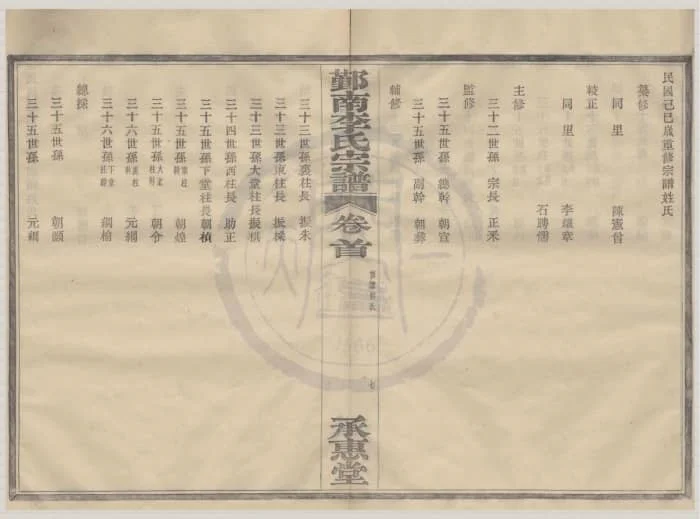 民國己巳歲重修宗譜姓氏
纂修
同里 陳憲曾
較正
同里 李續章
石騁儒
主修
三十二世孫 宗長 正釆
監修
三十五世孫 總幹 朝宣
三十五世孫 副幹 朝彝
輔修
鄞南李氏宗譜 卷首
七
承惠堂
三十三世孫裏柱長 振朱
三十三世孫東柱長 振樑
三十三世孫大堂柱長振棋
三十四世孫西柱長 助正
三十五世孫下堂柱長朝楨
三十五世孫 東柱幹 朝煌
三十五世孫 大堂柱幹 朝令
三十六世孫 裏柱幹 元綱
三十六世孫 下堂柱幹 綱檜
總採
三十五世孫 朝頤
三十五世孫 元綱